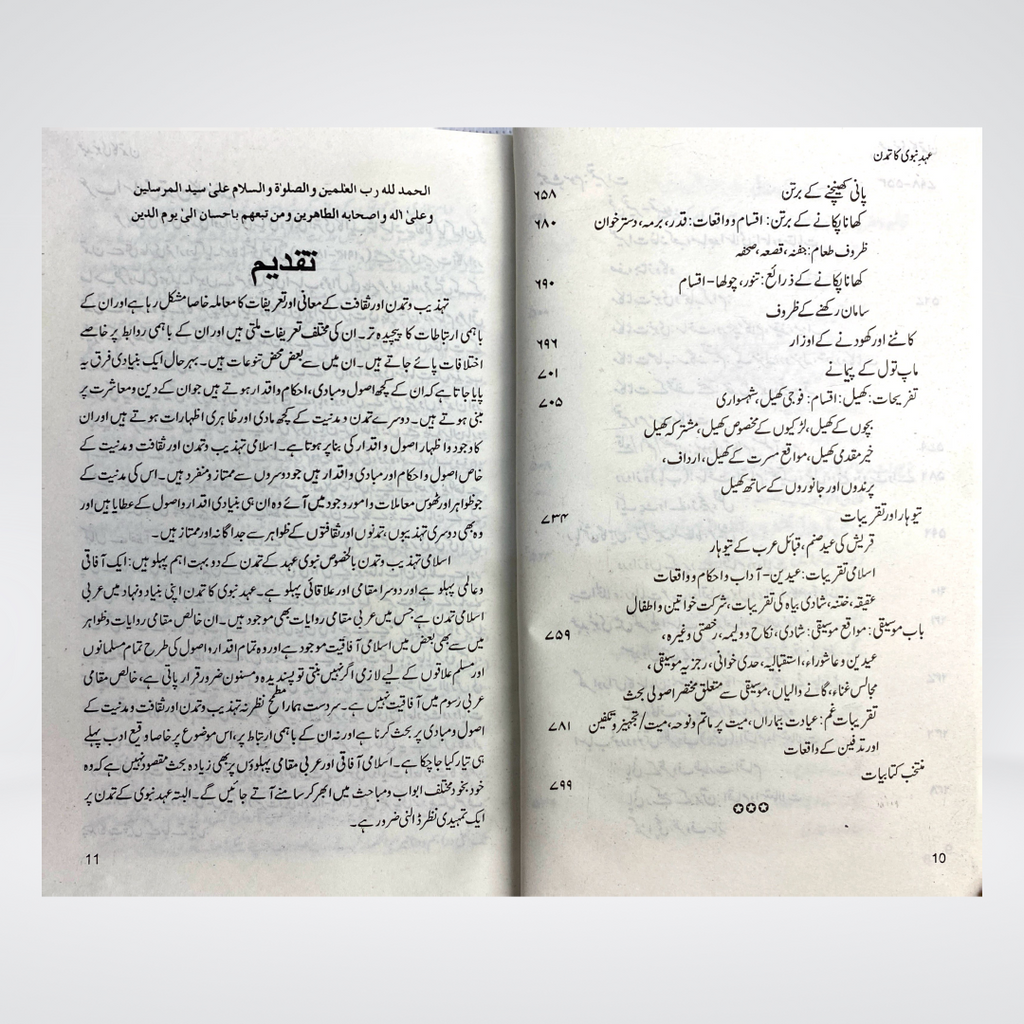 عہد نبوی کا تمدن
پانی کھینچنے کے برتن ۶۵۸
کھانا پکانے کے برتن: اقسام وواقعات: قدر، برمہ، دسترخوان ۶۸۰
ظروف طعام: جفنہ، قصعہ، صحفہ
کھانا پکانے کے ذرائع: تنور، چولھا-اقسام ۶۹۰
سامان رکھنے کے ظروف
کاٹنے اور کھودنے کے اوزار ۶۹۶
ماپ تول کے پیمانے ۷۰۱
تفریحات: کھیل: اقسام: فوجی کھیل، شہسواری ۷۰۵
بچوں کے کھیل، لڑکیوں کے مخصوص کھیل، مشترکہ کھیل
خیر مقدمی کھیل، مواقع مسرت کے کھیل، ارداف،
پرندوں اور جانوروں کے ساتھ کھیل
تیوہار اور تقریبات ۷۳۴
قریش کی عید صنم، قبائل عرب کے تیوہار
اسلامی تقریبات: عیدین-آداب واحکام وواقعات
عقیقہ، ختنہ، شادی بیاہ کی تقریبات، شرکت خواتین واطفال
باب موسیقی: مواقع موسیقی: شادی، نکاح وولیمہ، رخصتی وغیرہ، ۷۵۹
عیدین وعاشوراء، استقبالیہ، حدی خوانی، رجزیہ موسیقی،
مجالس غناء، گانے والیاں، موسیقی سے متعلق مختصر اصولی بحث
تقریبات غم: عیادت بیماراں، میت پر ماتم ونوحہ، میت/تجہیز وتکفین ۷۸۱
اور تدفین کے واقعات
منتخب کتابیات ۷۹۹
10
الحمد لله رب العلمين والصلوٰة والسلام علىٰ سيد المرسلين
وعلىٰ اله واصحابه الطاهرين ومن تبعهم باحسان الىٰ يوم الدين
تقدیم
تہذیب وتمدن اور ثقافت کے معانی اور تعریفات کا معاملہ خاصا مشکل رہا ہے اور ان کے
باہمی ارتباطات کا پیچیدہ تر۔ ان کی مختلف تعریفات ملتی ہیں اور ان کے باہمی روابط پر خاصے
اختلافات پائے جاتے ہیں۔ ان میں سے بعض محض تنوعات ہیں۔ بہرحال ایک بنیادی فرق یہ
پایا جاتا ہے کہ ان کے کچھ اصول ومبادی، احکام واقدار ہوتے ہیں جو ان کے دین ومعاشرت پر
مبنی ہوتے ہیں۔ دوسرے تمدن ومدنیت کے کچھ مادی اور ظاہری اظہارات ہوتے ہیں اور ان
کا وجود واظہار اصول واقدار کی بنا پر ہوتا ہے۔ اسلامی تہذیب وتمدن اور ثقافت ومدنیت کے
خاص اصول واحکام اور مبادی واقدار ہیں جو دوسروں سے ممتاز ومنفرد ہیں۔ اس کی مدنیت کے
جو ظواہر اور ٹھوس معاملات وامور وجود میں آئے وہ ان ہی بنیادی اقدار واصول کے عطایا ہیں اور
وہ بھی دوسری تہذیبوں، تمدنوں اور ثقافتوں کے ظواہر سے جداگانہ اور ممتاز ہیں۔
اسلامی تہذیب وتمدن بالخصوص نبوی عہد کے تمدن کے دو بہت اہم پہلو ہیں: ایک آفاقی
وعالمی پہلو ہے اور دوسرا مقامی اور علاقائی پہلو ہے۔ عہد نبوی کا تمدن اپنی بنیاد ونہاد میں عربی
اسلامی تمدن ہے جس میں عربی مقامی روایات بھی موجود ہیں۔ ان خالص مقامی روایات وظواہر
میں سے بھی بعض میں اسلامی آفاقیت موجود ہے اور وہ تمام اقدار، اصول کی طرح تمام مسلمانوں
اور مسلم علاقوں کے لیے لازمی اگر نہیں بنتی تو پسندیدہ ومسنون ضرور قرار پاتی ہے، خالص مقامی
عربی رسوم میں آفاقیت نہیں ہے۔ سردست ہمارا مطمح نظر نہ تہذیب وتمدن اور ثقافت ومدنیت کے
اصول ومبادی پر بحث کرنا ہے اور نہ ان کے باہمی ارتباط پر، اس موضوع پر خاصا وقیع ادب پہلے
ہی تیار کیا جاچکا ہے۔ اسلامی آفاقی اور عربی مقامی پہلوؤں پر بھی زیادہ بحث مقصود نہیں ہے کہ وہ
خود بخود مختلف ابواب ومباحث میں ابھر کر سامنے آتے جائیں گے۔ البتہ عہد نبوی کے تمدن پر
ایک تمہیدی نظر ڈالنی ضرور ہے۔
11